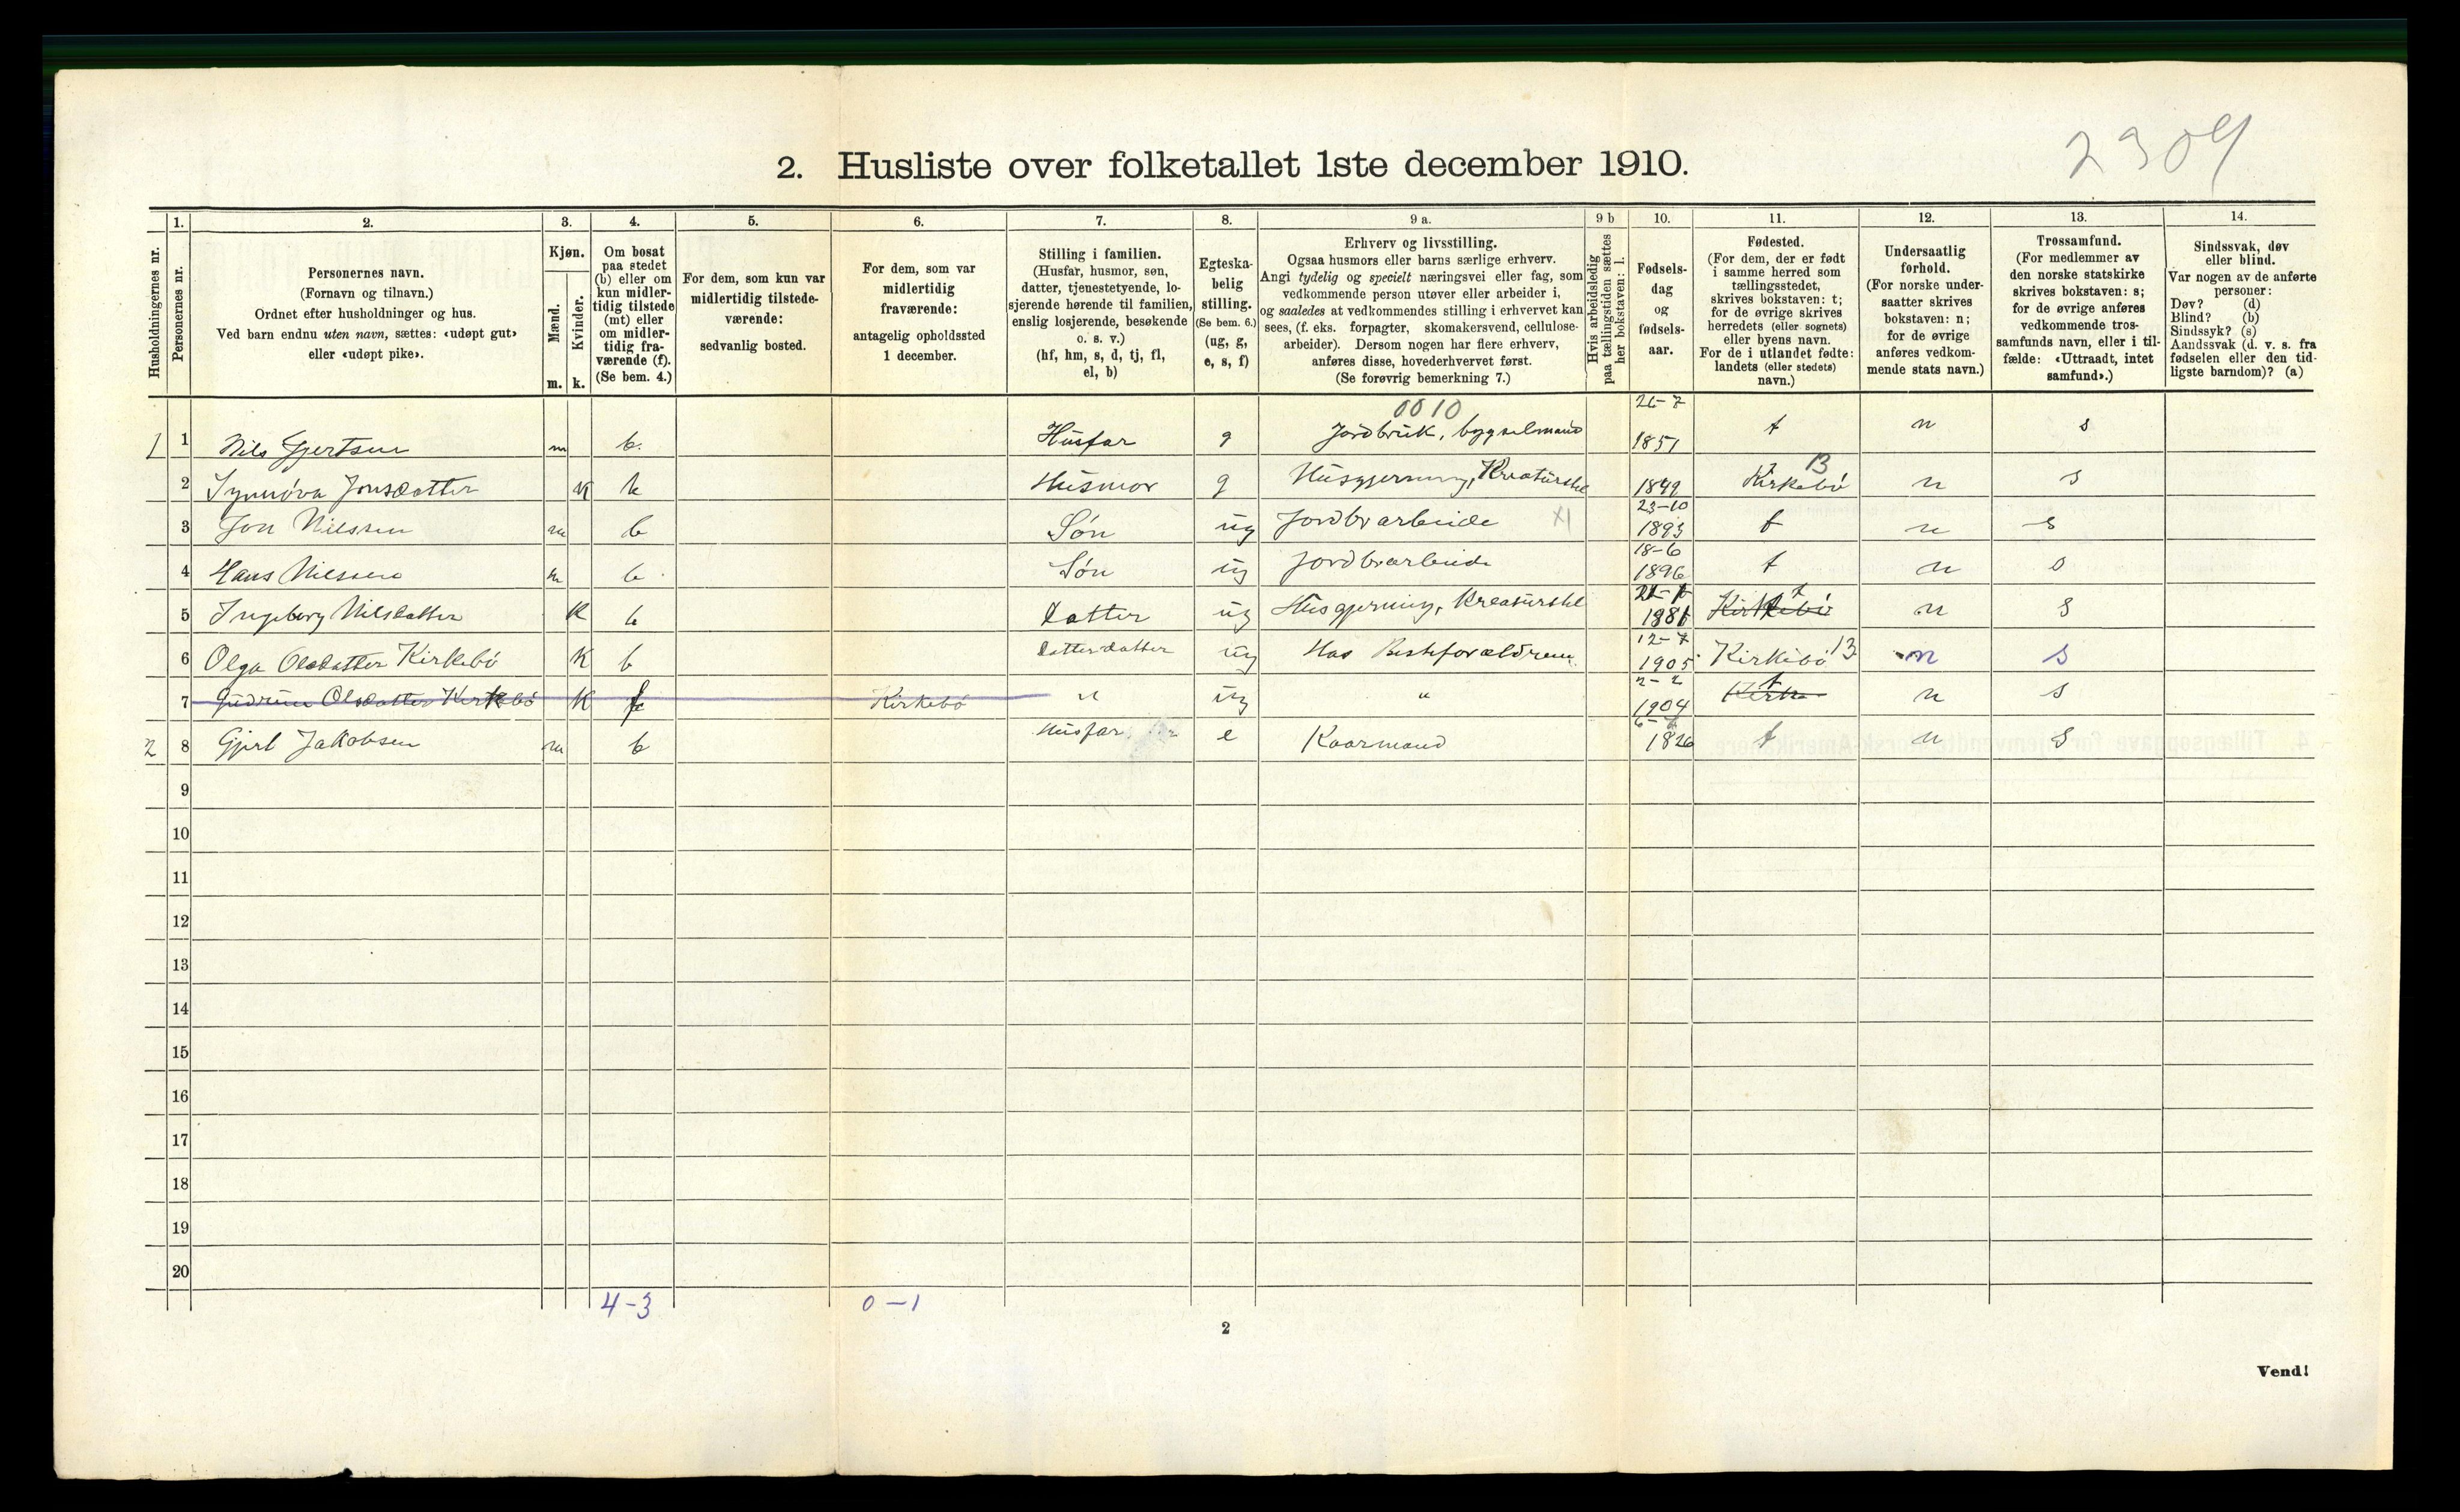 2304
2. Husliste over folketallet 1ste december 1910.
Husholdningernes nr.
1. Personernes nr.
2. Personernes navn.
(Fornavn og tilnavn.)
Ordnet efter husholdninger og hus.
Ved barn endnu uten navn, sættes: «udøpt gut»
eller «udøpt pike».
3. Kjøn.
Mænd. m.
Kvinder. k.
4. Om bosat
paa stedet
(b) eller om
kun midler-
tidig tilstede
(mt) eller
om midler-
tidig fra-
værende (f).
(Se bem. 4.)
5. For dem, som kun var
midlertidig tilstede-
værende:
sedvanlig bosted.
6. For dem, som var
midlertidig
fraværende:
antagelig opholdssted
1 december.
7. Stilling i familien.
(Husfar, husmor, søn,
datter, tjenestetyende, lo-
sjerende hørende til familien,
enslig losjerende, besøkende
o. s. v.)
(hf, hm, s, d, tj, fl,
el, b)
8. Egteska-
belig
stilling.
(Se bem. 6.)
(ug, g,
e, s, f)
9 a. Erhverv og livsstilling.
Ogsaa husmors eller barns særlige erhverv.
Angi tydelig og specielt næringsvei eller fag, som
vedkommende person utøver eller arbeider i,
og saaledes at vedkommendes stilling i erhvervet kan
sees, (f. eks. forpagter, skomakersvend, cellulose-
arbeider). Dersom nogen har flere erhverv,
anføres disse, hovederhvervet først.
(Se forøvrig bemerkning 7.)
9 b Hvis arbeidsledig
paa tællingstiden sættes
her bokstaven: l.
10. Fødsels-
dag
og
fødsels-
aar.
11. Fødested.
(For dem, der er født
i samme herred som
tællingsstedet,
skrives bokstaven: t;
for de øvrige skrives
herredets (eller sognets)
eller byens navn.
For de i utlandet fødte:
landets (eller stedets)
navn.)
12. Undersaatlig
forhold.
(For norske under-
saatter skrives
bokstaven: n;
for de øvrige
anføres vedkom-
mende stats navn.)
13. Trossamfund.
(For medlemmer av
den norske statskirke
skrives bokstaven: s;
for de øvrige anføres
vedkommende tros-
samfunds navn, eller i til-
fælde: «Uttraadt, intet
samfund».)
14. Sindssvak, døv
eller blind.
Var nogen av de anførte
personer:
Døv? (d)
Blind? (b)
Sindssyk? (s)
Aandssvak (d. v. s. fra
fødselen eller den tid-
ligste barndom)? (a)
0010 26-7
1 1 Nils Gjertsen m b. Husfar g Jordbruk, bygselmand 1851 t n s
2 Synnöva Jonsdatter K b Husmor g Husgjerning, Kreaturstel 1849 Kirkebö 13 n s
3 Jon Nilssen m b Søn ug Jordbrarbeide 23-10 1893 t n s
4 Hans Nilssen m b Søn ug Jordbrarbeide 18-6 1896 t n s
5 Ingeborg Nilsdatter K b Datter ug Husgjerning, Kreaturstel 1881 Kirkebö t n s
6 Olga Olsdatter Kirkebö K b Datterdatter ug Hos Besteforældrene 12-7 1905 Kirkebö 13 n s
7 Gudrun Olsdatter Kirkebö K f Kirkebö " ug " 2-2 1904 Kirke t n s
2 8 Gjert Jakobsen m b Husfar e Kaarmand 1826 t n s
9
10
11
12
13
14
15
16
17
18
19
20
4-3 0-1
2
Vend!